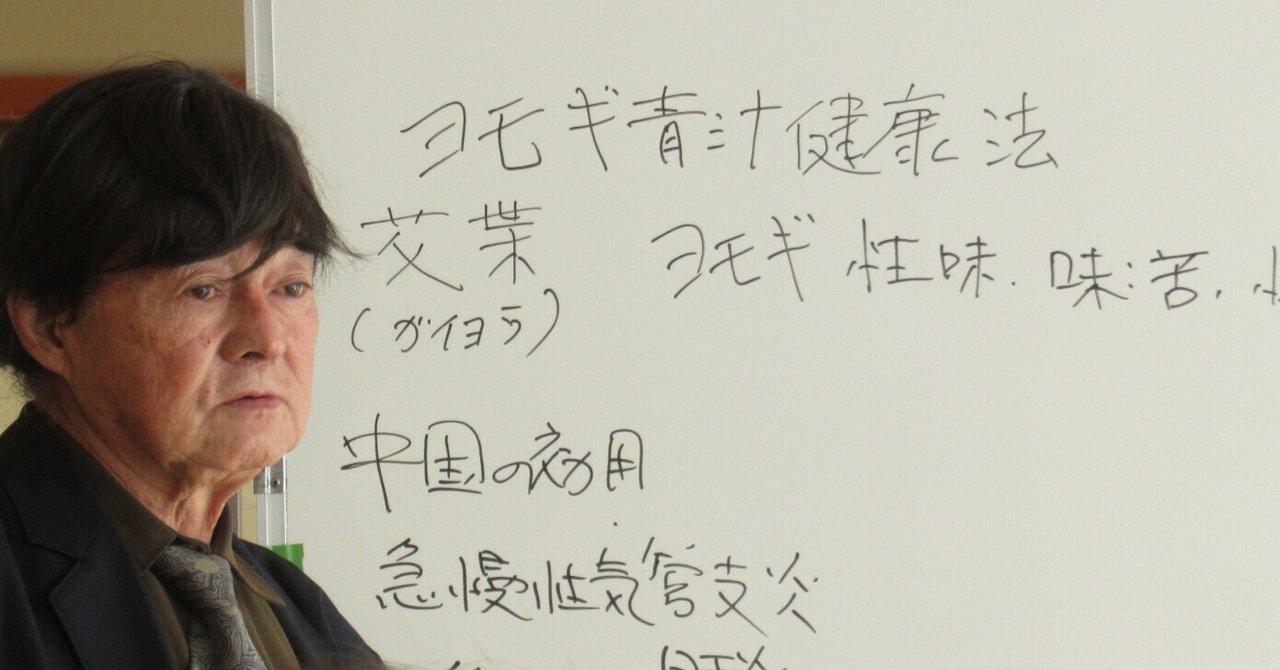 ヨモギ青汁健康法
艾葉 ヨモギ 性味. 味:苦.
(ガイヨウ)
中国の効用
急慢性気管支炎